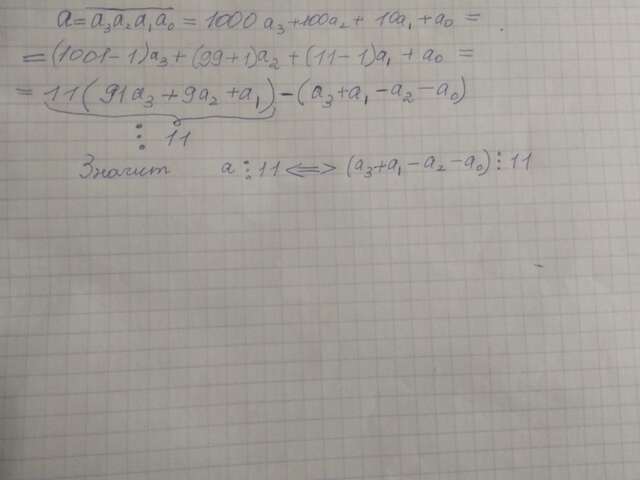 a = a₃a₂a₁a₀ = 1000a₃+100a₂ + 10a₁ + a₀ =
= (1001-1)a₃ + (99+1)a₂ + (11-1)a₁ + a₀ =
= 11(91a₃ + 9a₂ + a₁) - (a₃+a₁-a₂-a₀)
⋮ 11
Значит a ⋮ 11 <=> (a₃+a₁-a₂-a₀) ⋮ 11